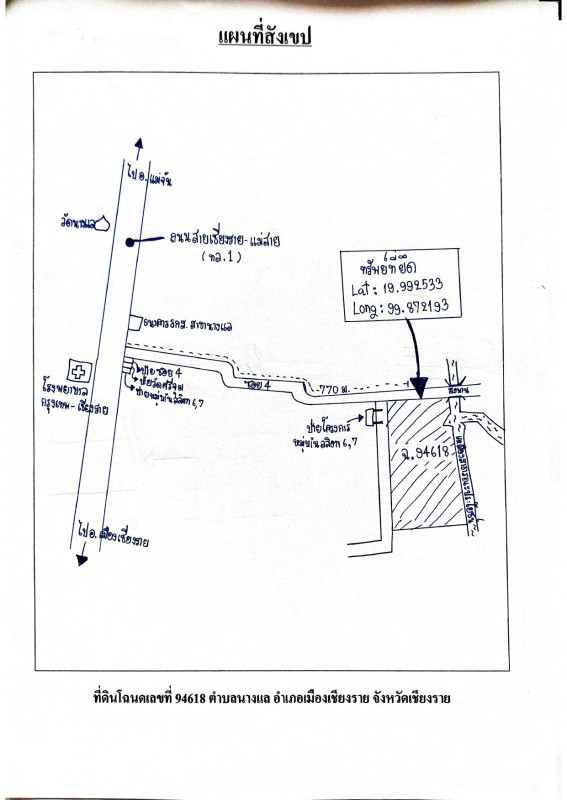 แผนที่สังเขป
ไป อ. แม่จัน
วัดนางแล
ถนนสายเชียงราย-แม่สาย
(ทล.1)
ทรัพย์ที่ยึด
Lat: 19.992533
Long: 99.872193
ธนาคาร ธกส. สาขานางแล
ป้าย ซอย 4
ป้ายหมู่บ้านสลิตา 6,7
โรงพยาบาล
กรุงเทพ-เชียงราย
ซอย 4
770 ม.
สะพาน
ป้ายโครงการ
ฉ.94618
ไป อ. เมืองเชียงราย
ที่ดินโฉนดเลขที่ 94618 ตำบลนางแล อำเภอเมืองเชียงราย จังหวัดเชียงราย